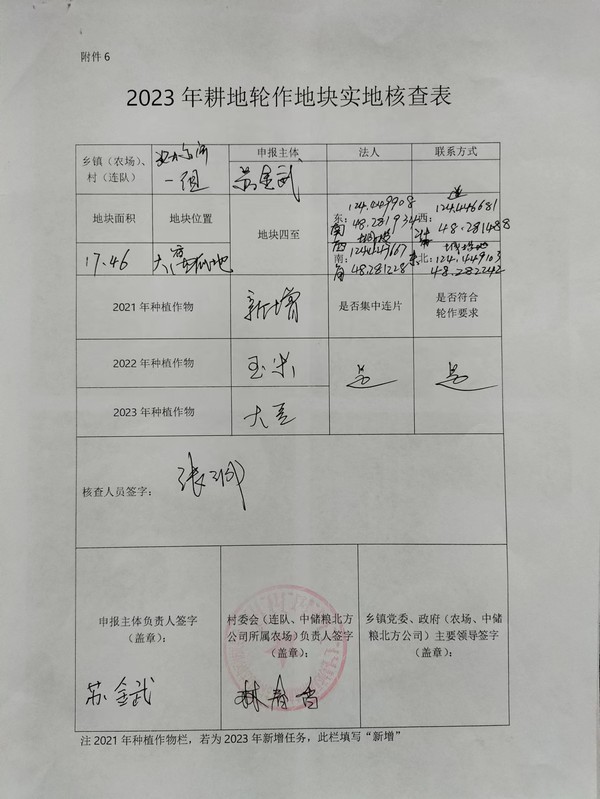 附件6
2023年耕地轮作地块实地核查表
乡镇（农场）、
村（连队）
一组
申报主体
苏金武
法人
联系方式
地块面积
地块位置
地块四至
东：
124.449908
48.281934
西：
124.446681
48.281488
17.46
南：
48.281228
北：
124.449103
48.282242
2021年种植作物
新增
是否集中连片
是否符合
轮作要求
2022年种植作物
玉米
是
是
2023年种植作物
大豆
核查人员签字：
申报主体负责人签字
（盖章）：
苏金武
村委会（连队、中储粮北方
公司所属农场）负责人签字
（盖章）：
林春香
乡镇党委、政府（农场、中储
粮北方公司）主要领导签字
（盖章）：
注2021年种植作物栏，若为2023年新增任务，此栏填写“新增”